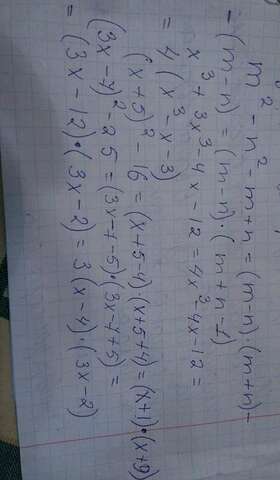 m² - n² - m + n = (m-n)·(m+n) -
- (m-n) = (m-n)·(m+n-1)
x³ + 3x³ - 4x - 12 = 4x³ - 4x - 12 =
= 4(x³ - x - 3)
(x+5)² - 16 = (x+5-4)(x+5+4) = (x+1)·(x+9)
(3x-7)² - 25 = (3x-7-5)·(3x-7+5) =
= (3x-12)·(3x-2) = 3(x-4)·(3x-2)